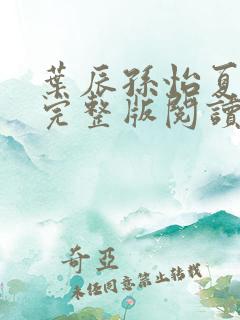 葉辰孫怡夏
完整版閱讀
奇亞
未經同意禁止轉載